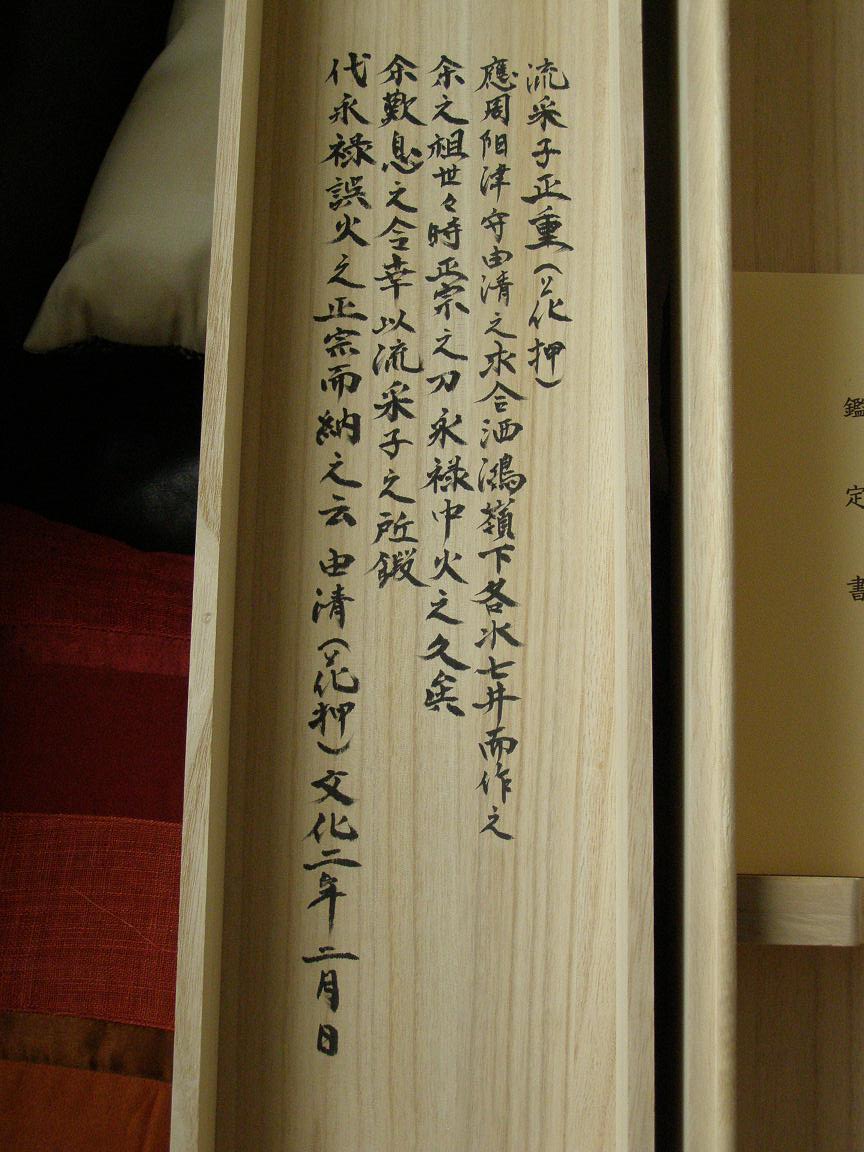 流采子正重(花押)
應周阳津守由清之求合洒鴻嶺下各水七井而作之
余之祖世々時正宗之刀永禄中火之久矣
余歎息之合幸以流采子之所鍜
代永禄誤火之正宗而納之云 由清(花押)文化二年二月日
鑑定書